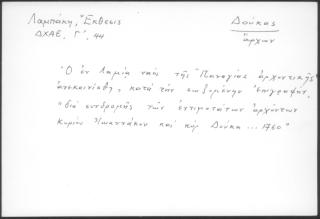 Λαμπάκη, Ἔκθεσις
ΔΧΑΕ, Γ', 44
Δούκας
ἄρχων
"Ὁ ἐν Λαμίᾳ ναὸς τῆς Παναγίας ἀρχοντικῆς
ἀνεκαινίσθη, κατὰ τὴν σωζομένην ἐπιγραφήν,
"διὰ συνδρομῆς τῶν ἐντιμοτάτων ἀρχόντων
κυρίου καὶ κὺρ Δούκα ... 1760"